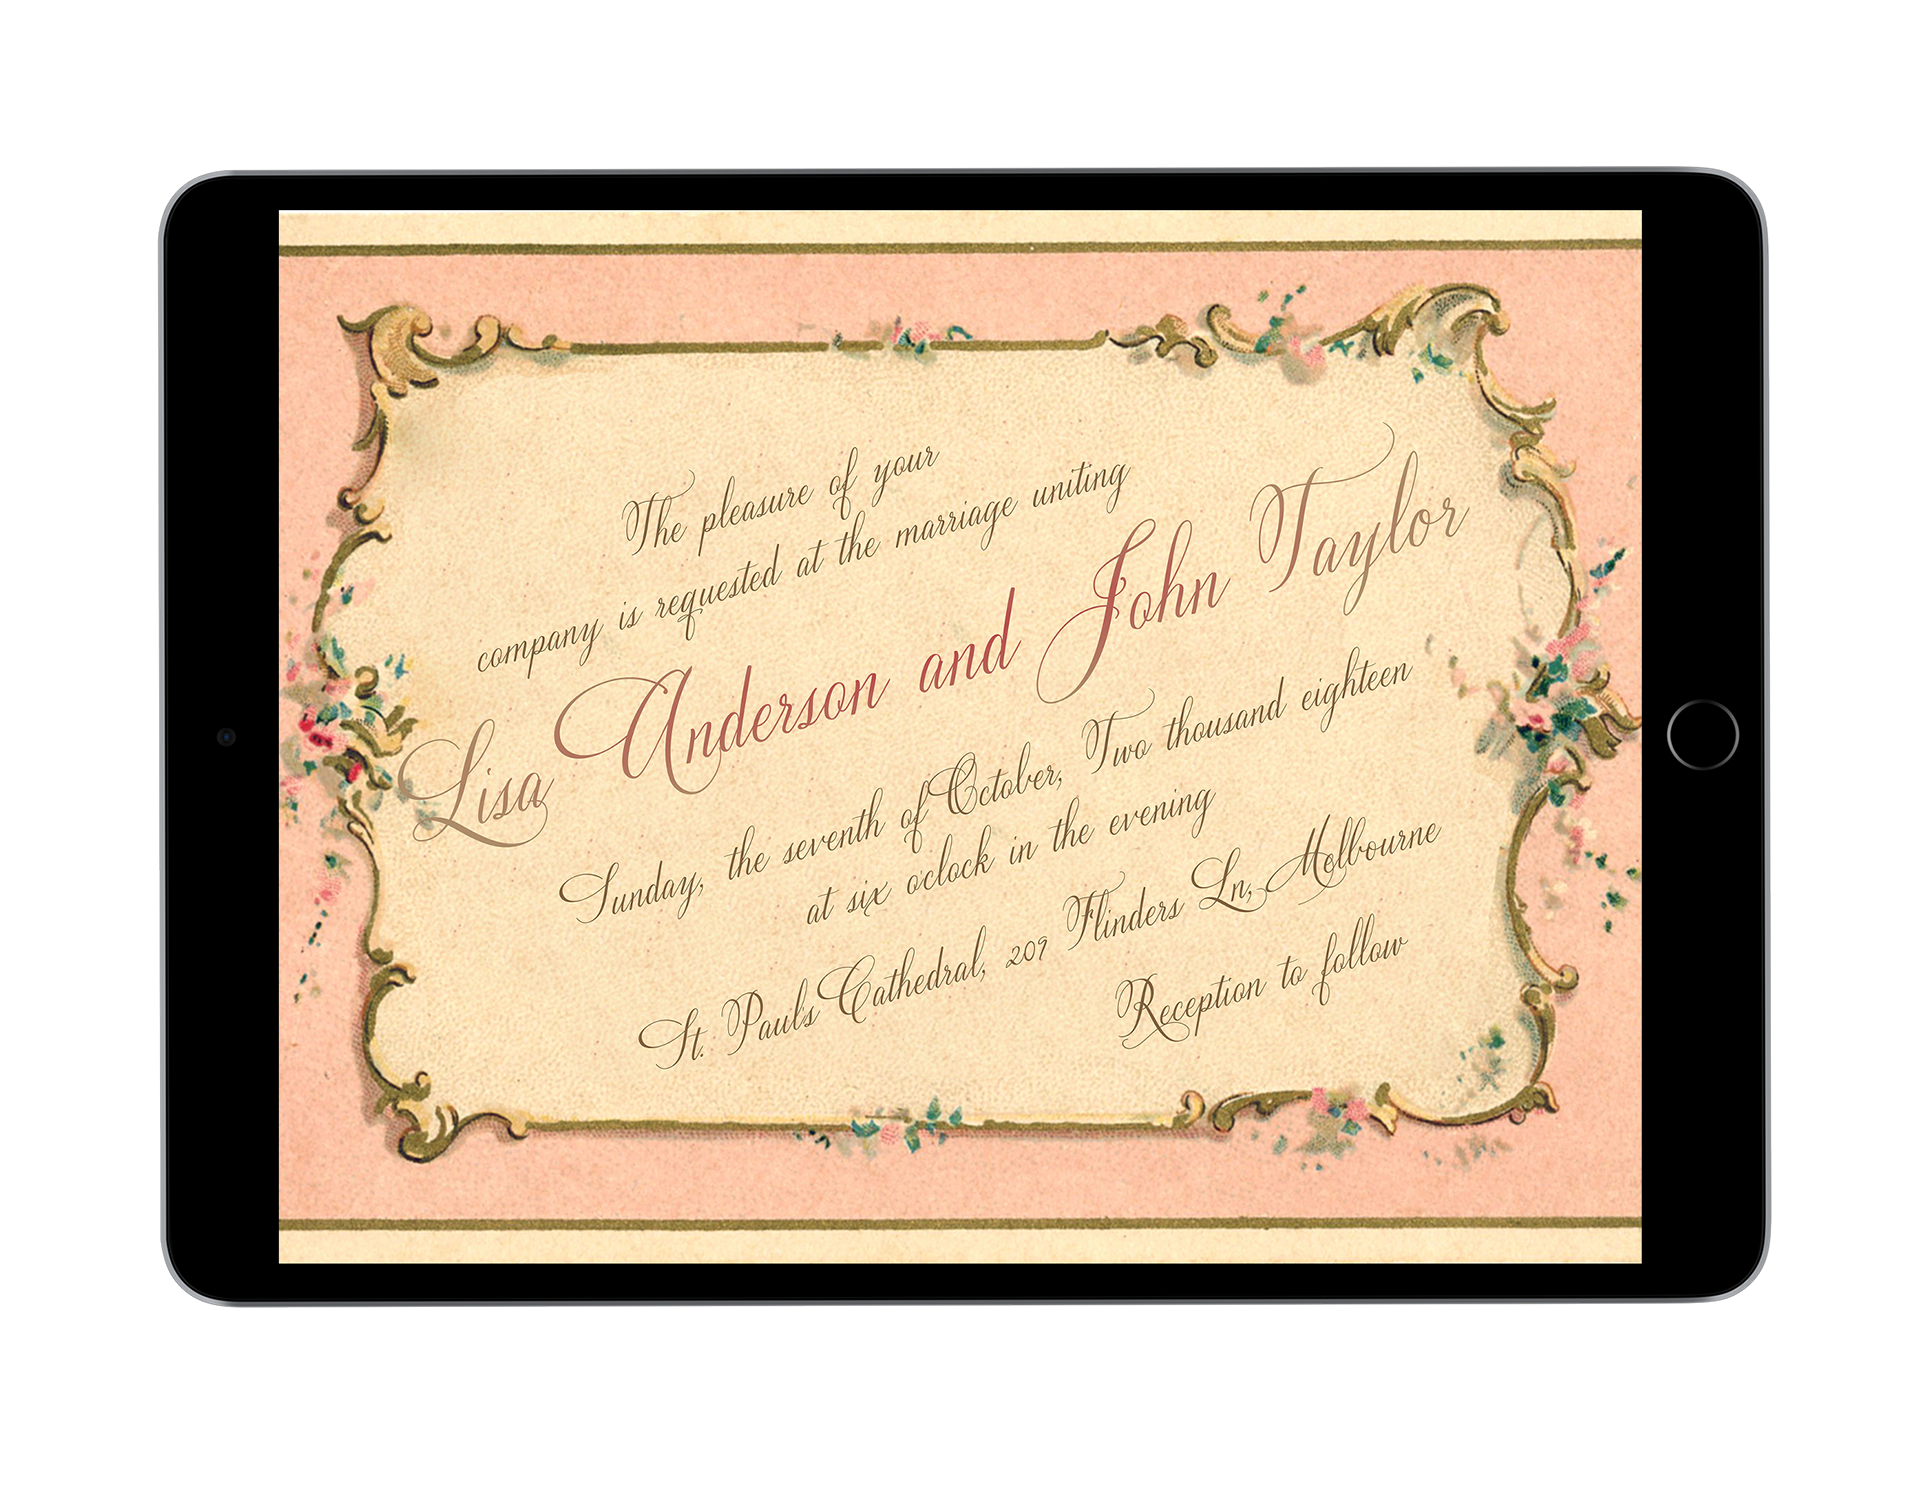 The pleasure of your
company is requested at the marriage uniting
Lisa Anderson and John Taylor
Sunday, the seventh of October, Two thousand eighteen
at six o'clock in the evening
St. Paul's Cathedral, 209 Flinders Ln, Melbourne
Reception to follow